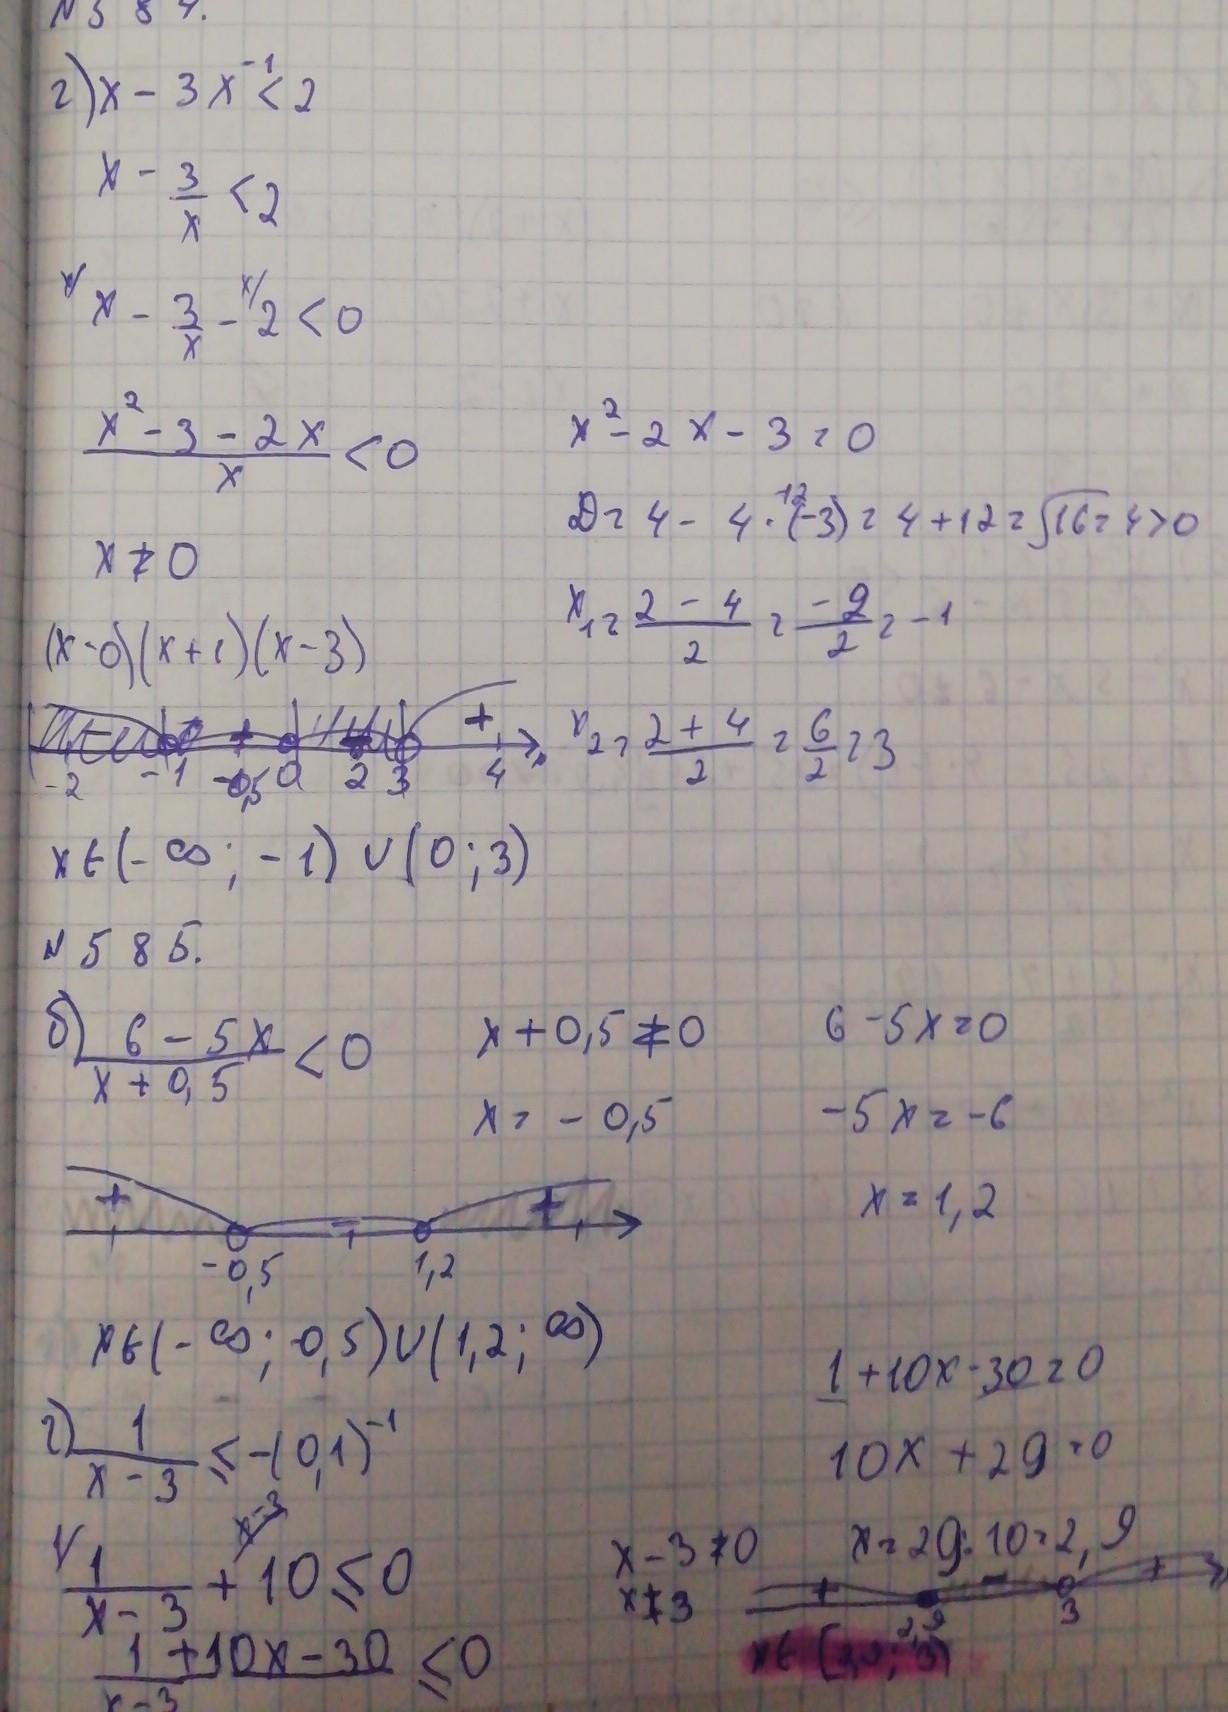 N 5 8 4.
г) x - 3x⁻¹ < 2
x - 3/x < 2
x/ x - 3/x - x/ 2 < 0
(x² - 3 - 2x)/x < 0
x ≠ 0
(x-0)(x+1)(x-3)
+ +
-2 -1 -0,5 0 2 3 4
x ∈ (-∞; -1) ∪ (0; 3)
x² - 2x - 3 = 0
D = 4 - 4 · (-3) = 4 + 12 = √16 = 4 > 0
-12
x₁ = (2 - 4)/2 = -2/2 = -1
x₂ = (2 + 4)/2 = 6/2 = 3
N 5 8 5.
б) (6 - 5x)/(x + 0,5) < 0
x + 0,5 ≠ 0
x = - 0,5
6 - 5x = 0
-5x = -6
x = 1,2
+ - +
-0,5 1,2
x ∈ (-∞; -0,5) ∪ (1,2; ∞)
г) 1/(x - 3) ≤ -(0,1)⁻¹
1/ 1/(x - 3) + x-3/ 10 ≤ 0
(1 + 10x - 30)/(x-3) ≤ 0
1 + 10x - 30 = 0
10x + 29 = 0
x = 29 : 10 = 2,9
x - 3 ≠ 0
x ≠ 3
+ - +
2,9 3
x ∈ [2,9; 3)